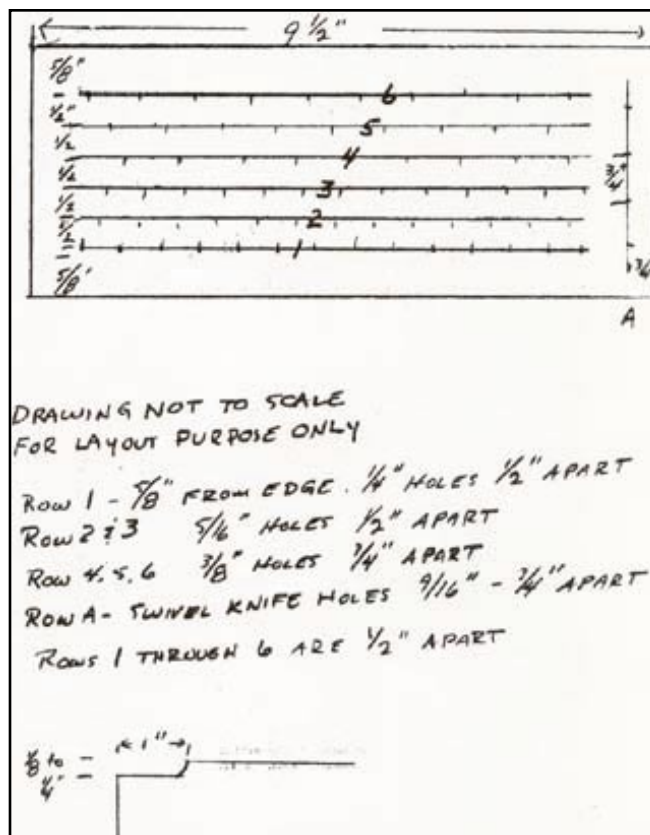 9 1/2"
5/8"
1/2"
1/2
1/2
1/2
1/2
5/8"
6
5
4
3
2
1
3/4"
3/4
A
DRAWING NOT TO SCALE
FOR LAYOUT PURPOSE ONLY
ROW 1 - 5/8" FROM EDGE. 1/4" HOLES 1/2" APART
ROW 2 & 3 5/16" HOLES 1/2" APART
ROW 4, 5, 6 3/8" HOLES 3/4" APART
ROW A - SWIVEL KNIFE HOLES 9/16" - 3/4" APART
ROWS 1 THROUGH 6 ARE 1/2" APART
1"
1/8 to
1/4"